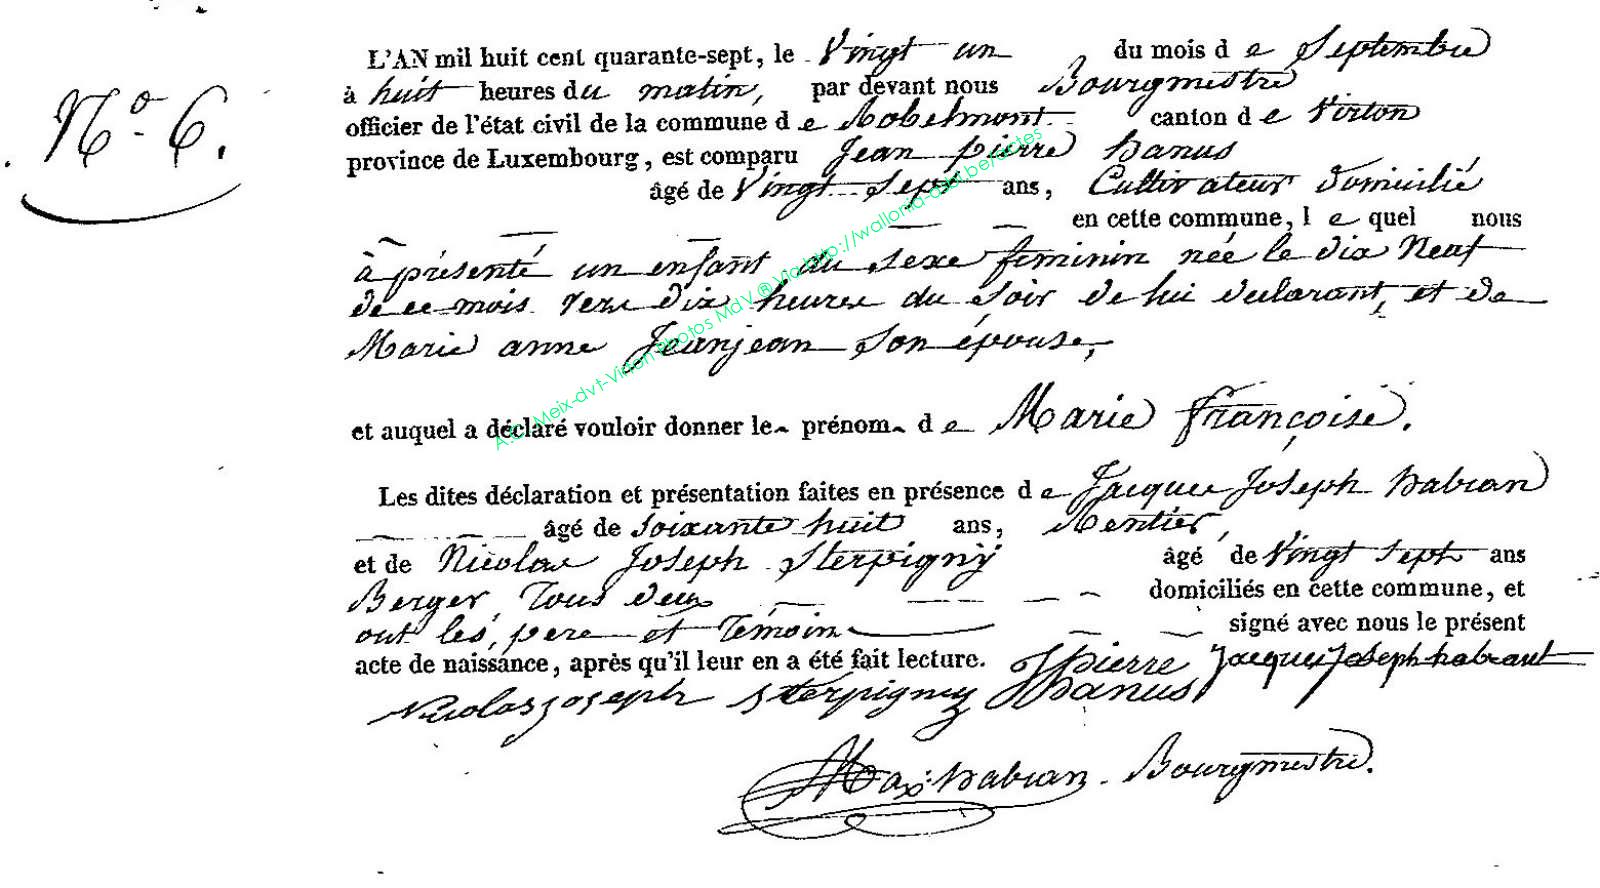 L'AN mil huit cent quarante-sept, le Vingt un du mois de Septembre
N.o 6.
à huit heures du matin, par devant nous Bourgmestre
officier de l'état civil de la commune de Robelmont canton de Virton
province de Luxembourg, est comparu Jean pierre hanus
âgé de Vingt Sept ans, Cultivateur domicilié
en cette commune, le quel nous
à présenté un enfant du sexe feminin née le dix Neuf
de ce mois vers dix heures du soir de lui declarant, et de
Marie anne Jeanjean son épouse,
et auquel a déclaré vouloir donner le prénom de Marie françoise.
Les dites déclaration et présentation faites en présence de Jacques Joseph habran
âgé de soixante huit ans, Rentier,
et de Nicolas Joseph Sterpigny âgé de Vingt sept ans
Berger, Tous deux domiciliés en cette commune, et
ont les, pere et Témoin signé avec nous le présent
acte de naissance, après qu'il leur en a été fait lecture. JPierre Jacques Joseph habrant
Nicolas joseph Sterpigny hanus
Max: habran. Bourgmestre.
A.C. Meix-dvt-Virton Photos MdV ® Via http://wallonia-asbl.be/actes